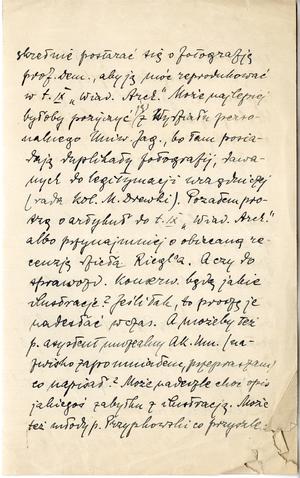 skrzętnie postarać się o fotografję
prof. Dem., aby ją móc reprodukować
w t. IX „Wiad. Arch." Może najlepiej
byłoby pożyczyć ją z Wydziału perso-
nalnego Uniw. Jag., bo tam posia-
dają duplikaty fotografij, dawa-
nych do legitymacji urzędniczej
(rada kol. M. Drewki). Pozatem pro-
szę o artykuł do t. IX „Wiad. Arch."
albo przynajmniej o obiecaną re-
cenzję dzieła Riegl'a. A czy do
sprawozd. konserw. będą jakie
ilustracje? Jeśli tak, to proszę je
nadesłać wczas. A możeby też
p. asystent muzealny Ak. Um. (na-
zwisko zapomniałem, przepraszam)
co napisał? Może nadeśle choć opis
jakiegoś zabytku z ilustracją. Może
też młody p. Przypkowski co przyśle.